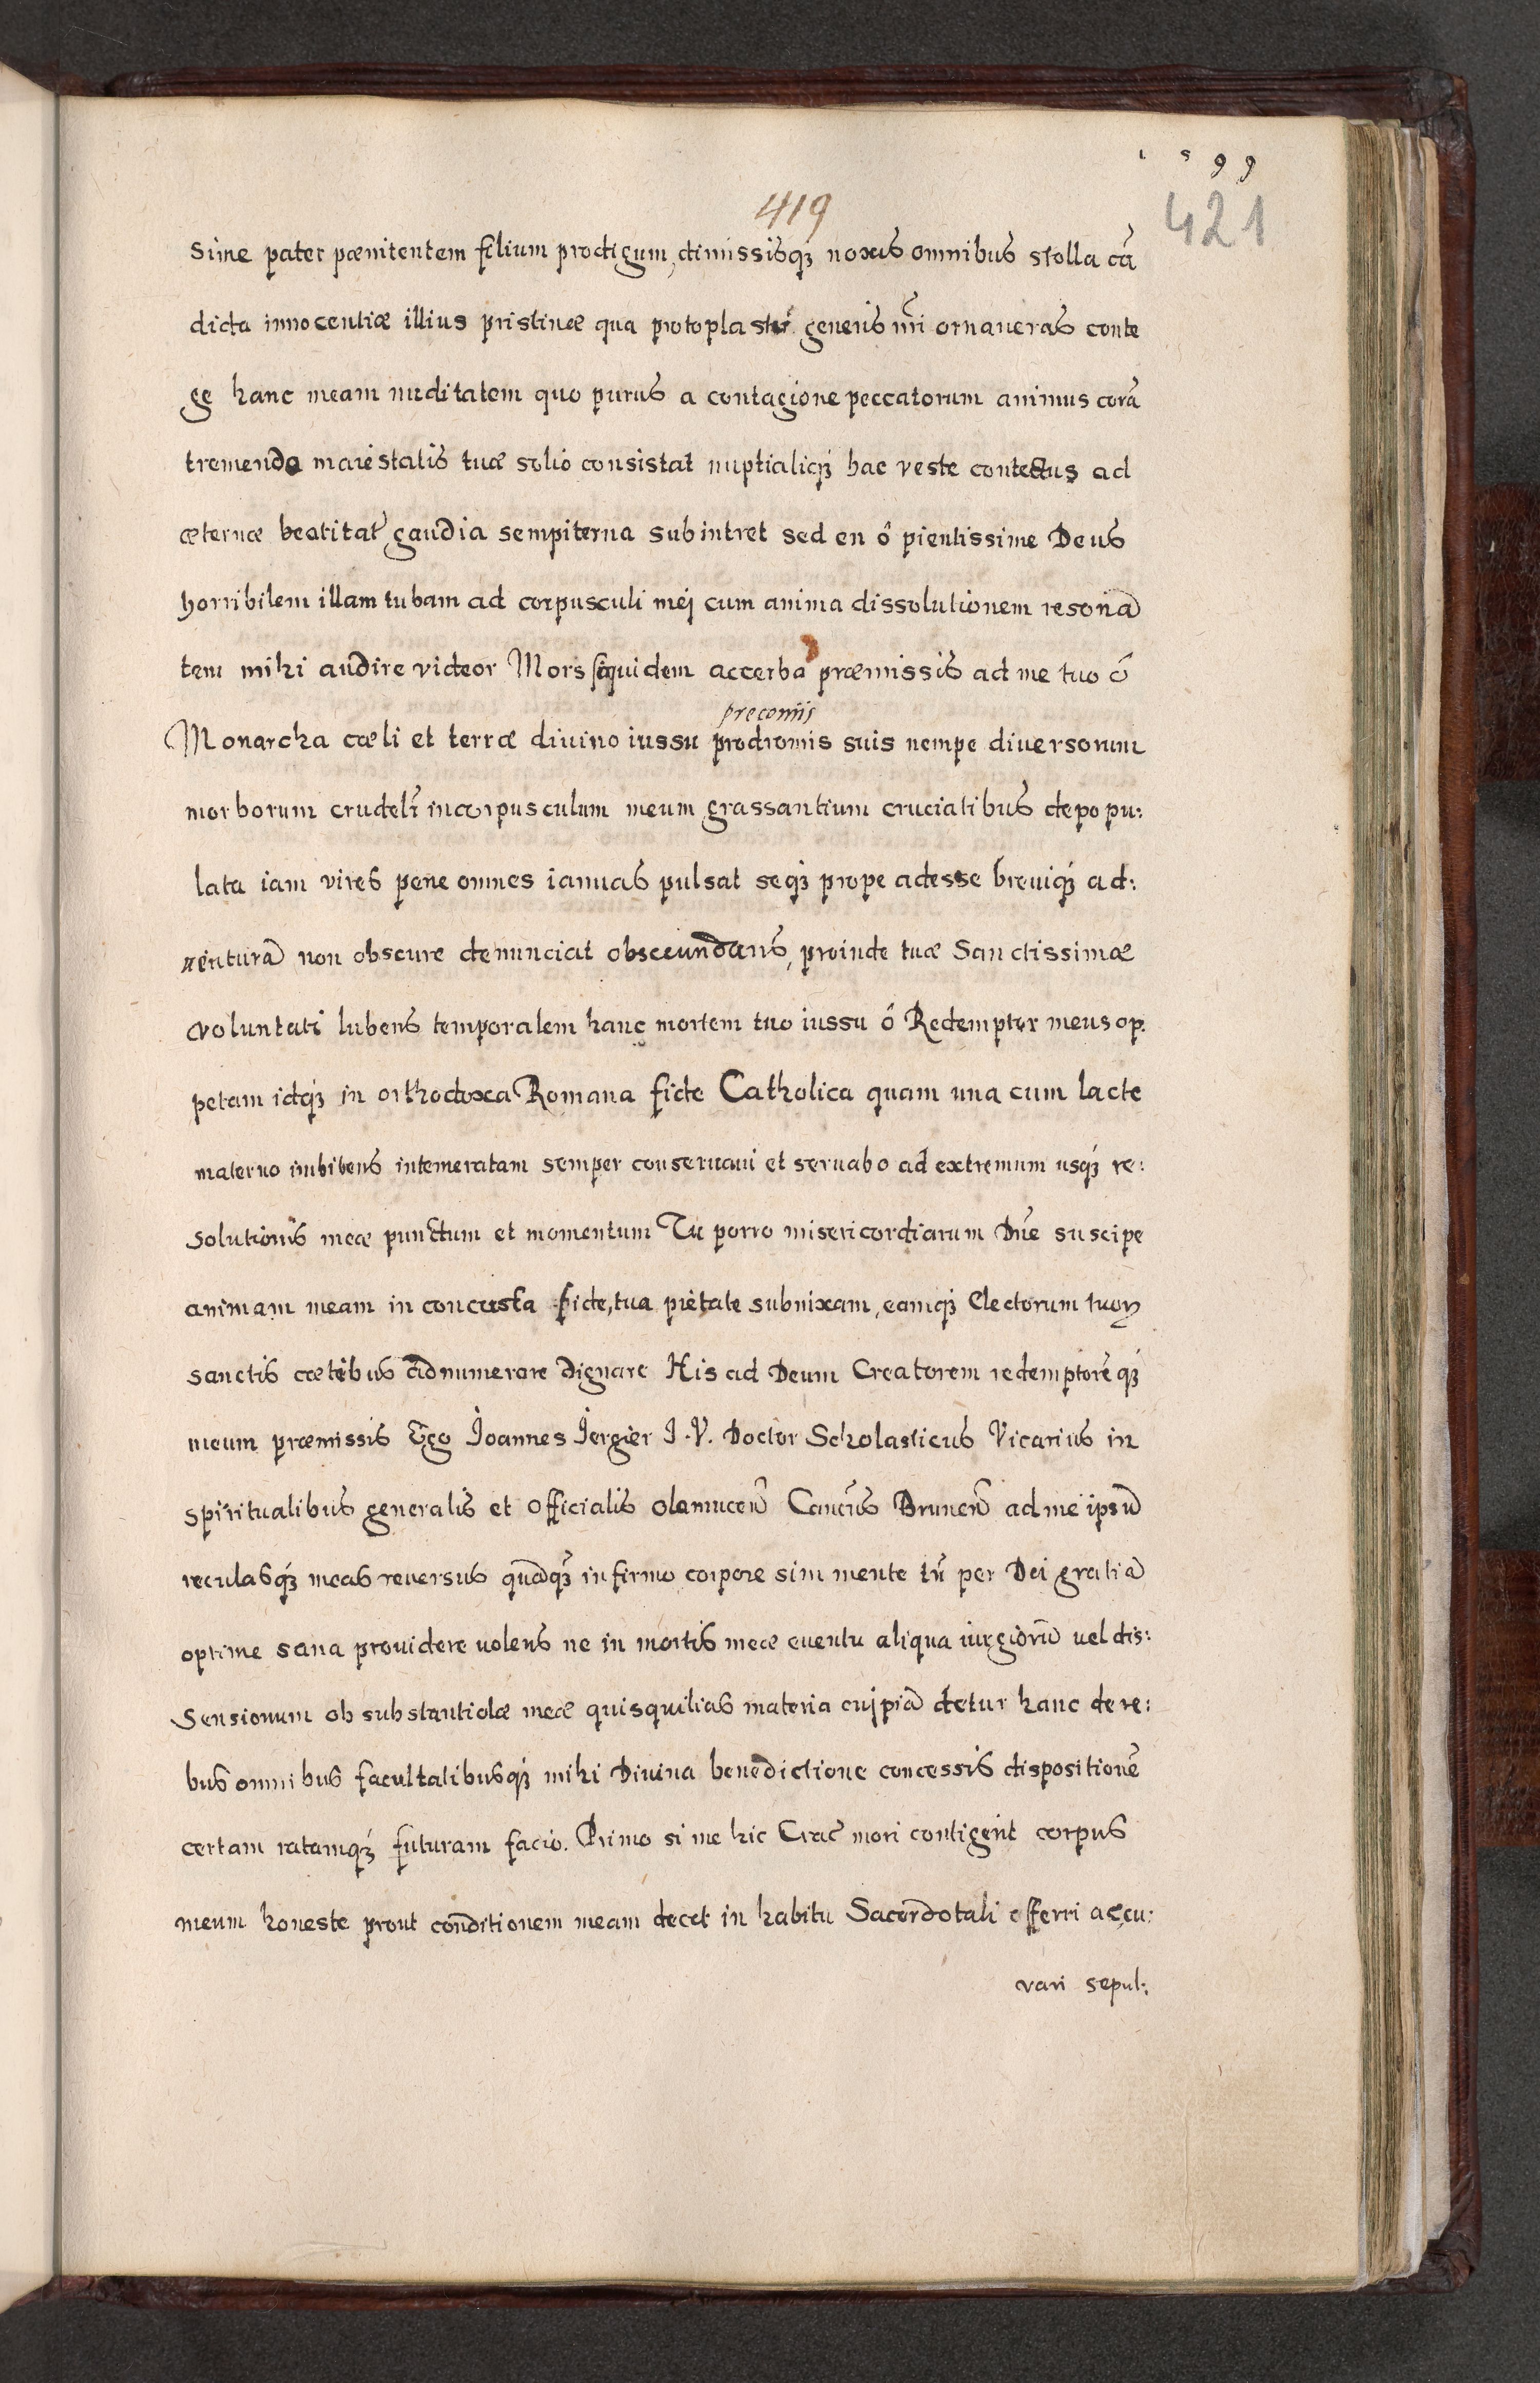 1 5 9 9
419
421
sime pater pœnitentem filium prodigum, dimissisq̃ noxis omnibus stolla cã
dicta innocentiæ illius pristinæ qua protoplastũ generis nr̃i ornaueras conte
ge hanc meam nuditatem quo purus a contagione peccatorum animus corã
tremendo maiestatis tuæ solio consistat nuptialiq̃ hac veste contectus ad
æternæ beatitat̃ gaudia sempiterna subintret sed en ô pientissime Deus
horribilem illam tubam ad corpusculi mej cum anima dissolutionem resonã
tem mihi audire videor Mors siquidem accerba præmissis ad me tuo ô
preconijs
Monarcha cœli et terræ diuino iussu prodromis suis nempe diuersorum
morborum crudelr̃ in corpusculum meum grassantium cruciatibus depopu:
lata iam vires pene omnes ianuas pulsat seq̃ prope adesse breuiq̃ ad:
uenturã non obscure denunciat obsecundans, proinde tuæ Sanctissimæ
voluntati lubens temporalem hanc mortem tuo iussu ô Redemptor meus op:
petam idq̃ in orthodoxa Romana fide Catholica quam una cum lacte
materno imbibens intemeratam semper conseruaui et seruabo ad extremum usq̃ re:
solutionis meæ punctum et momentum Tu porro misericordiarum Dñe suscipe
animam meam inconcussa fide, tua pietate subnixam, eamq̃ Electorum tuoꝝ
sanctis cœtibus adnumerare dignare His ad Deum Creatorem redemptorẽq̃
meum præmissis Ego Joannes Jergier J. V. Doctor Scholasticus Vicarius in
spiritualibus generalis et Officialis Olomuceñ Canc̃us Bruneñ ad me ipsũ
reculasq̃ meas reuersus quãq̃ infirmo corpore sim mente tñ per Dei gratiã
optime sana prouidere uolens ne in mortis meæ euentu aliqua iurgiorũ uel dis:
sensionum ob substantiolæ meæ quisquilias materia cujpiã detur hanc de re:
bus omnibus facultatibusq̃ mihi Diuina benedictione concessis dispositionẽ
certam ratamq̃ futuram facio. Primo si me hic Crac̃ mori contigerit corpus
meum honeste prout conditionem meam decet in habitu Sacerdotali efferri ac cu:
rari sepul: